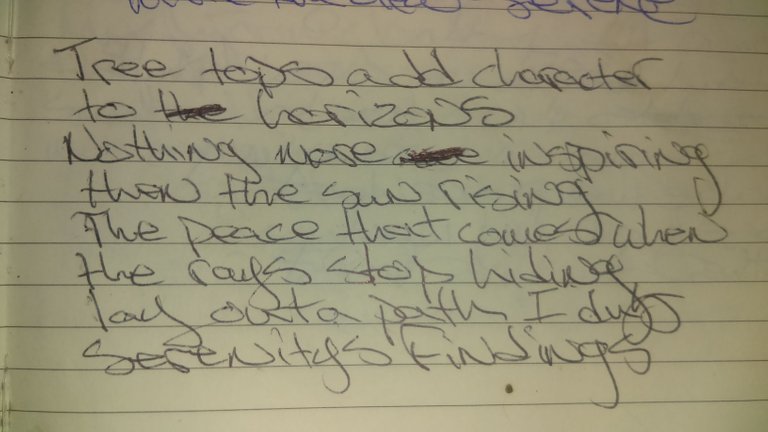 serene
Tree tops add character
to the horizons
Nothing more inspiring
then the sun rising
The peace that comes when
the rays stop hiding
lay out a path I dug
serenitys findings